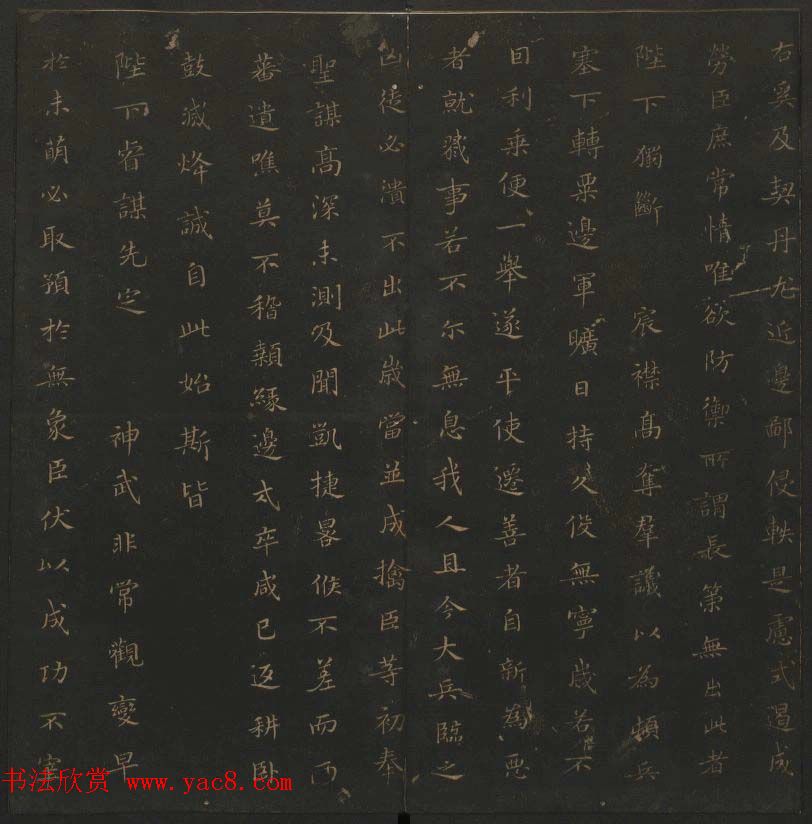 右奚及契丹尤近邊鄙侵軼是慮式遏成
勞臣庶常情唯欲防禦所謂長策無出此者
陛下獨斷 宸襟高奪羣議以為頓兵
塞下轉粟邊軍曠日持久俊無寧歲若不
因利乘便一舉遂平使遷善者自新為惡
者就戮事若不尔無息我人且今大兵臨之
凶徒必潰不出此歲當並成擒臣等初奉
聖謀高深未測及聞凱捷晷候不差而兩
蕃遺噍莫不稽顙緣邊戎卒咸已返耕卧
鼓滅烽誠自此始斯皆
陛下睿謀先定 神武非常觀變早
於未萌必取預於無象臣伏以成功不宰
书法欣赏 www.yac8.com